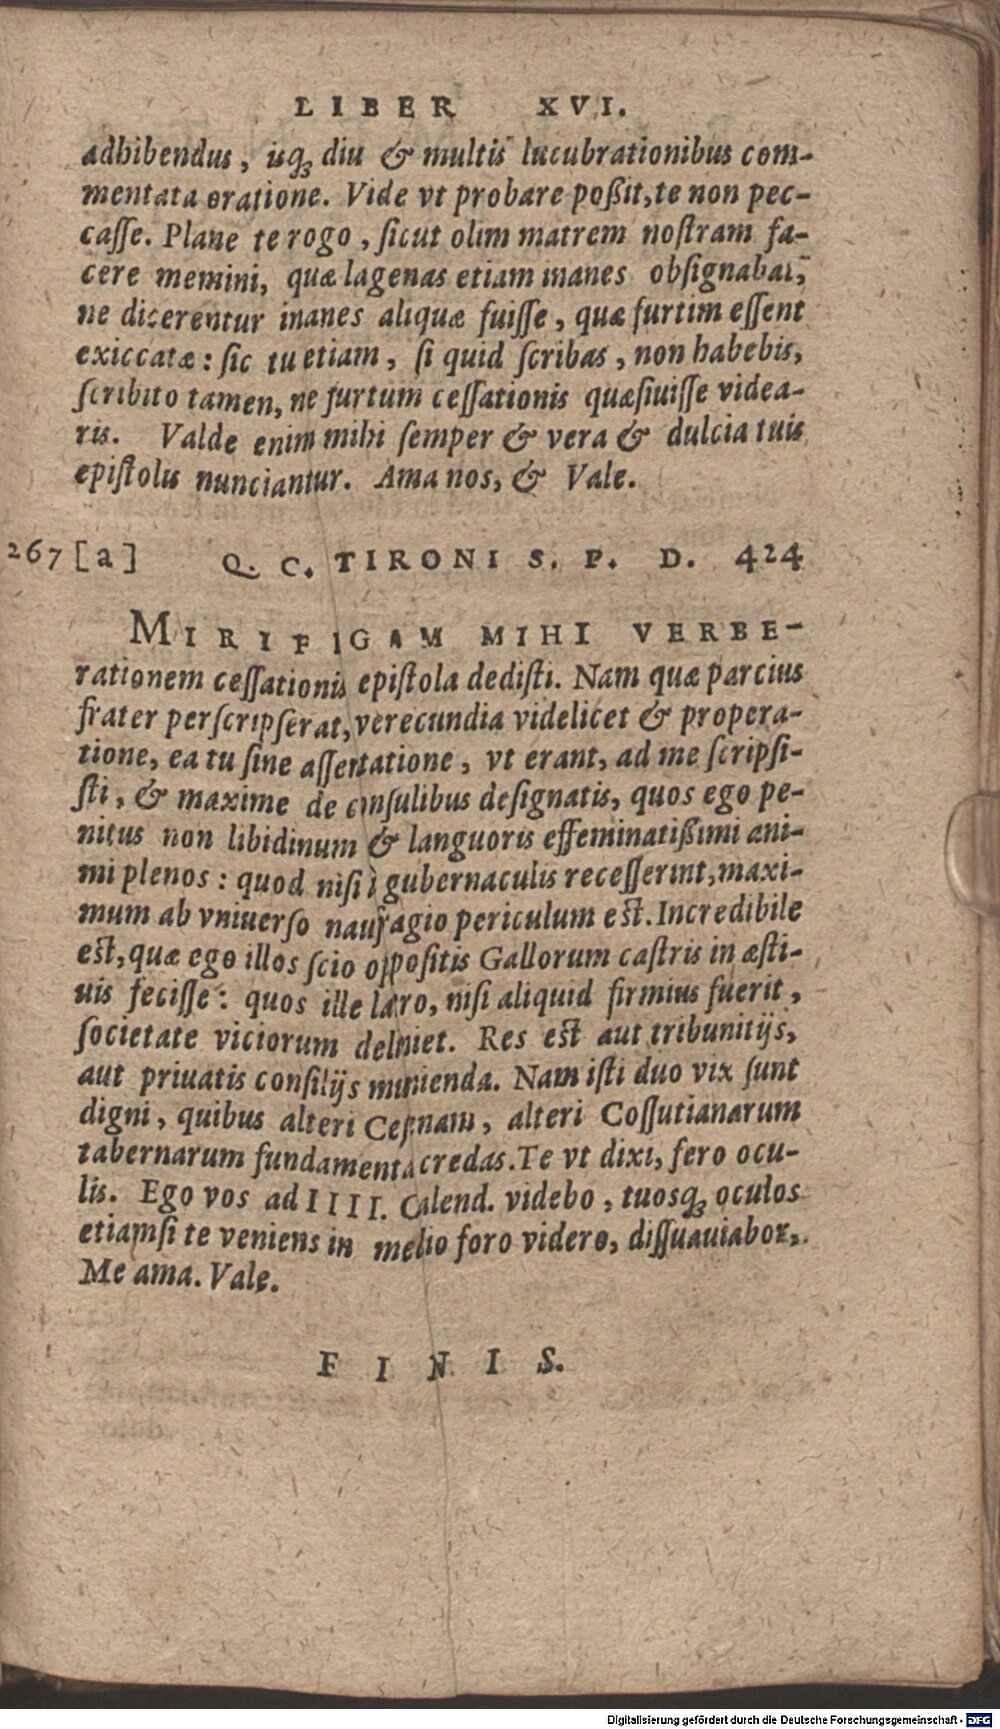 LIBER XVI.
adhibendus, isq́ꝫ diu & multis lucubrationibus com-
mentata oratione. Vide vt probare poßit, te non pec-
casſe. Plane te rogo, ſicut olim matrem noſtram fa-
cere memini, quæ lagenas etiam inanes obſignabat,
ne dicerentur inanes aliquæ fuiſſe, quæ furtim eſſent
exiccatæ: ſic tu etiam, ſi quid ſcribas, non habebis,
ſcribito tamen, ne furtum ceſſationis quæſiuiſſe videa-
ris. Valde enim mihi ſemper & vera & dulcia tuis
epiſtolis nunciantur. Ama nos, & Vale.
267 [a] Q. C. TIRONI S. P. D. 424
MIRIFIGAM MIHI VERBE-
rationem ceſſationis epiſtola dediſti. Nam quæ parcius
frater perſcripſerat, verecundia videlicet & propera-
tione, ea tu ſine aſſentatione, vt erant, ad me ſcripſi-
ſti, & maxime de conſulibus deſignatis, quos ego pe-
nitus non libidinum & languoris effeminatißimi ani-
mi plenos: quod niſi à gubernaculis receſſerint, maxi-
mum ab vniuerſo naufragio periculum est. Incredibile
est, quæ ego illos ſcio oppoſitis Gallorum caſtris in æſti-
uis feciſſe: quos ille latro, niſi aliquid firmius fuerit,
ſocietate viciorum deliniet. Res est aut tribunitijs,
aut priuatis conſilijs munienda. Nam iſti duo vix ſunt
digni, quibus alteri Ceſenam, alteri Coſſutianarum
tabernarum fundamenta credas. Te vt dixi, fero ocu-
lis. Ego vos ad IIII. Calend. videbo, tuosq́ꝫ oculos
etiamſi te veniens in medio foro videro, diſſuauiabor,
Me ama. Vale.
FINIS.
Digitalisierung gefördert durch die Deutsche Forschungsgemeinschaft - DFG